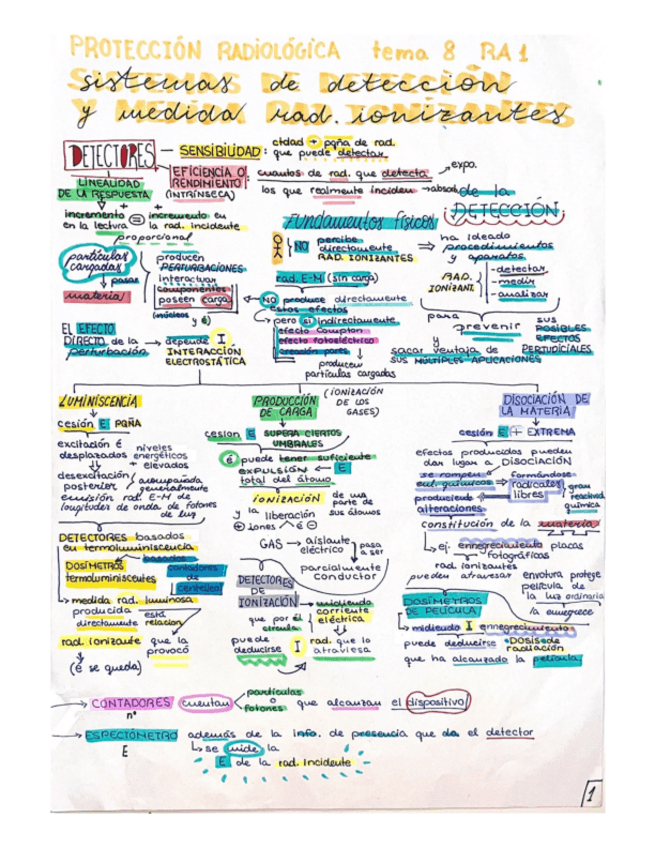 PROTECCIÓN RADIOLÓGICA tema 8 RA1
SISTEMAS DE DETECCIÓN
Y MEDIDA RAD. IONIZANTES
DETECTORES — SENSIBILIDAD: ctdad + pqña de rad.
que puede detectar
EFICIENCIA O RENDIMIENTO (INTRÍNSECA): cuantos de rad. que detecta → expo.
los que realmente inciden → absorb.
LINEALIDAD
DE LA RESPUESTA
incremento = incremento en
en la lectura la rad. incidente
proporcional
Fundamentos físicos de la DETECCIÓN
OJO NO percibe
directamente
RAD. IONIZANTES
⇒ ha ideado
procedimientos
y aparatos
RAD.
IONIZANT.
- detectar
- medir
- analizar
para
prevenir sus
POSIBLES
EFECTOS
PERJUDICIALES
y
sacar ventaja de
SUS MÚLTIPLES APLICACIONES
partículas
cargadas
pasar
materia
producen
PERTURBACIONES
interactuar
componentes
poseen carga
(núcleos y é)
rad. E-M (sin carga)
NO produce directamente
estos efectos
pero sí indirectamente
efecto Compton
efecto fotoeléctrico
creación pares
producen
partículas cargadas
EL EFECTO
DIRECTO de la → depende I
perturbación
INTERACCIÓN
ELECTROSTÁTICA
LUMINISCENCIA
cesión E PQÑA
excitación é niveles
desplazados energéticos
+ elevados
desexcitación acompañada
posterior generalmente
emisión rad. E-M de
longitudes de onda de fotones
de luz
DETECTORES basados
en termoluminiscencia
basados
DOSÍMETROS
termoluminiscentes
contadores
de
centelleo
medida rad. luminosa
producida está
directamente relación
rad. ionizante que la
provocó
(é se queda)
PRODUCCIÓN
DE CARGA
(IONIZACIÓN
DE LOS
GASES)
cesion E SUPERA CIERTOS
UMBRALES
é puede tener suficiente
EXPULSIÓN ← E
total del átomo
IONIZACIÓN de una
parte de
sus átomos
y la liberación
⊕ iones é ⊖
GAS → aislante
eléctrico pasa
a ser
parcialmente
conductor
DETECTORES
DE
IONIZACIÓN → midiendo
corriente
eléctrica
que por él
circula
puede
deducirse I rad. que lo
atraviesa
DISOCIACIÓN DE
LA MATERIA
cesión E + EXTREMA
efectos producidos pueden
dar lugar a DISOCIACIÓN
se rompen formándose
enl. químicos radicales
libres
gran
reactivid.
química
produciendo
alteraciones
constitución de la materia
ej. ennegrecimiento placas
fotográficas
rad. ionizantes
pueden atravesar envoltura protege
película de
la luz ordinaria
la ennegrece
DOSÍMETROS
DE PELÍCULA
midiendo I ennegrecimiento
puede deducirse DOSIS de
radiación
que ha alcanzado la película
→ CONTADORES cuentan partículas
o
fotones que alcanzan el dispositivo
nº
→ ESPECTÓMETRO además de la info. de presencia que da el detector
E
se mide la
E de la rad. incidente
1